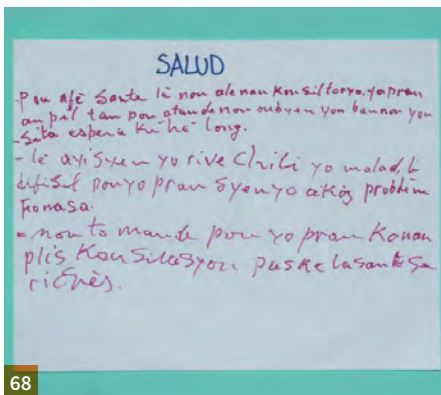 SALUD
- Pou afè Sante lè nou ale nan konsiltoryo. yo pran
an pil tan pou atande nou oubyen yon bannou yon
- Sita espera ki hè long.
- lè ayisyen yo rive Chili yo malad, li
difisil pou yo pran swen yo akoz problèm
Fonasa.
- nou to mande pou yo pran Ka nan
plis Konsiltasyon paske lasante se
richès.
68